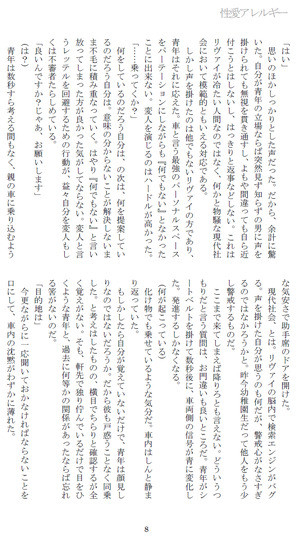 性愛アレルギー
「はい」
思いのほかしっかりとした声だった。だから、余計に驚
いた。自分が青年の立場ならば突然見ず知らずの男に声を
掛けられても無視を貫き通すし、よもや間違っても自ら近
付こうとはしないし、はっきりと返事などしない。これは
リヴァイが冷たい人間なのではなく、何かと物騒な現代社
会において模範的ともいえる対応である。
しかし声を掛けたのは他でもないリヴァイの方であり、
青年はそれに応えた。車と言う最強のパーソナルスペース
をパーテーションにしながらも『何でもない』となかった
ことに出来ない、変人を演じるのはハードルが高かった。
「……乗ってくか？」
何をしているのだろう自分は、の次は、何を提案してい
るのだろう自分は。意味の分からないことが解決しないま
ま不毛に積み重なっていく。はやり『何でもない』と言い
放ってしまった方が良かった気がしてならない。変人と言
うレッテルを回避するための行動が、益々自分を変人もし
くは不審者たらしめている。
「良いんですか？じゃあ、お願いします」
（は？）
青年は数秒すら考える間もなく、親の車に乗り込むよう
な気安さで助手席のドアを開けた。
現代社会、とは、リヴァイの脳内で検索エンジンがバグ
る。声を掛けた自分が思うのも何だが、警戒心がなさすぎ
るのではなかろうか。昨今幼稚園生だって他人をもう少
し警戒するものだ。
ここまで来てしまえば降りろとも言えない。どういうつ
もりだと言う質問は、お門違いも良いところだ。青年がシ
ートベルトを掛けて数秒後に、車両側の信号が青に変化し
た。発進するしかなくなる。
（何が起こっている）
化け物でも乗せているような気分だ。車内はしんと静ま
り返っていた。
もしかしたら自分が覚えていないだけで、青年は顔見し
りなのではないだろうか。だから彼も戸惑うことなく同乗
した。と考えはしたものの、横目でちらりと確認するが全
く覚えがない。そも、軒先で独り佇んでいるだけで目をひ
くような青年と、過去に何等かの関係があったならば忘れ
る筈がないのだ。
「目的地は」
今更ながらに一応聞いておかなければならないことを
口にして、車内の沈黙がわずかに薄れた。
8